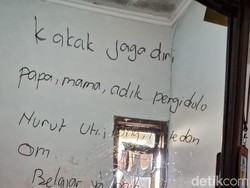 kakak jaga diri
papa, mama, adik pergi dulo
Nurut Uti,
dan
OM.
Belajar
detikcom